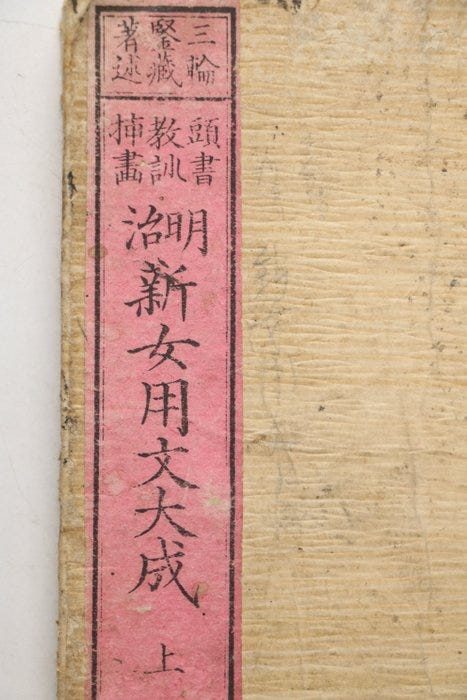 三輪
竪藏
著述
頭書
教訓
挿畫
明治
新女用文大成
上